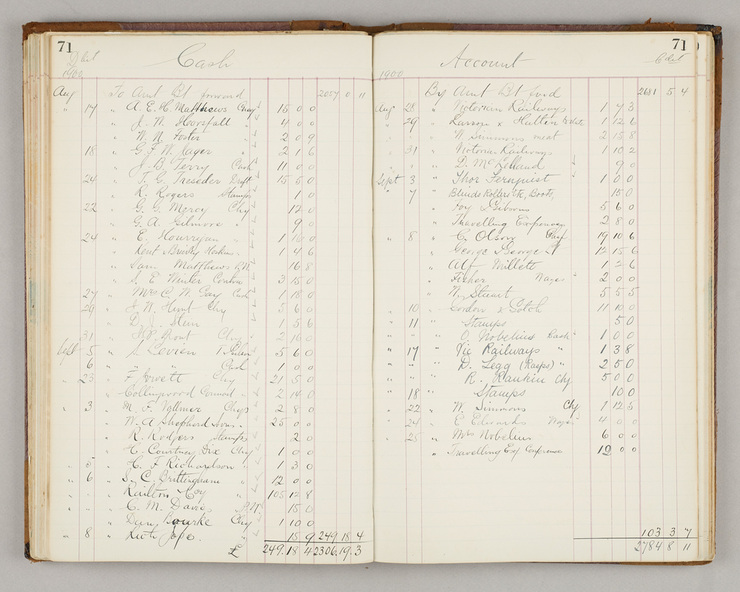 71
Cash
Aug To Amt Bt forward 2057 0 11
" 17 " A. E. H. Matthews Chq 15 0 0
" J. N. Horsfall " 4 0 0
" W. N. Foster " 2 0 9
18 " G. F. N. Eager " 2 1 6
" J. B. Terry Cash 11 0 0
24 " F. G. Treseder Draft 15 5 0
" R. Rogers Stamps 1 0
22 " G. G. Mercy Chq 12 0
" G. A. Gilmore " 9 0
24 " E. Hourigan " 1 10 0
" 1 4 6
" Sam Matthews P.N. 16 8
" S. E. Winter Cooke 3 15 0
27 " Mrs C. W. Gay Cash 1 10 0
29 " J. N. Hunt Chq 5 6 0
" D. Hum " 1 5 6
31 " Grant Chq 2 10 0
Sept 5 " S. Levien 5 6 0
" 6 " " Cash 1 0 0
" 25 " F. Jowett Chq 21 5 0
" Collingwood Council " 2 14 0
" 3 " M. F. Vollmer Chqs 2 8 0
" W. A. Shepherd Sons " 25 0 0
" R. Rodgers Stamps 2 0
" H. Courtney Dix Chq 1 0 0
" 5 " H. F. Richardson " 1 3 0
" 6 " S. C. Brittingham " 12 0 0
" Renlton Coy " 105 12 8
" C. M. Davis P.N. 15 0
" Bourke Chq 1 10 0
" 8 " Keith Jope. 18 9 249 18 4
£ 249. 18 4 2306. 19. 3
71
Account
1900
By Amt Bt ford 2681 5 4
Aug 28 " Victorian Railways 1 7 3
" 29 " 1 12 6
" " W Simmons meat 2 15 8
" 31 " Victorian Railways 1 10 2
" D. McLelland 9 0
Sept 3 " Thor Fernquist 1 0 0
" 7 " Blinds Rollers etc, Boots, 15 0
" Foy & Gibsons 5 6 0
" Travelling Expenses 2 8 0
" 8 " C. Olsen Chq 19 10 6
" George & George 12 15 6
" Alf Willets 1 2 6
" Fisher Wages 2 0 0
" W. Stuart 5 5 5
" 10 " Gordon & Gotch 11 10 0
" 11 " Stamps 5 0
" C. Nobelius Cash 1 0 0
" 17 " Vic Railways " 1 3 8
" " D. Legg (Rasps) " 2 5 0
" " R. Rankin Chq 5 0 0
" 18 " Stamps 10 0
" 22 " W. Simmons Chq 1 12 5
" 24 " E Edwards Wages 4 0 0
" 25 " Mrs Nobelius 6 0 0
" Travelling Exp 12 0 0
103 3 7
2784 8 11